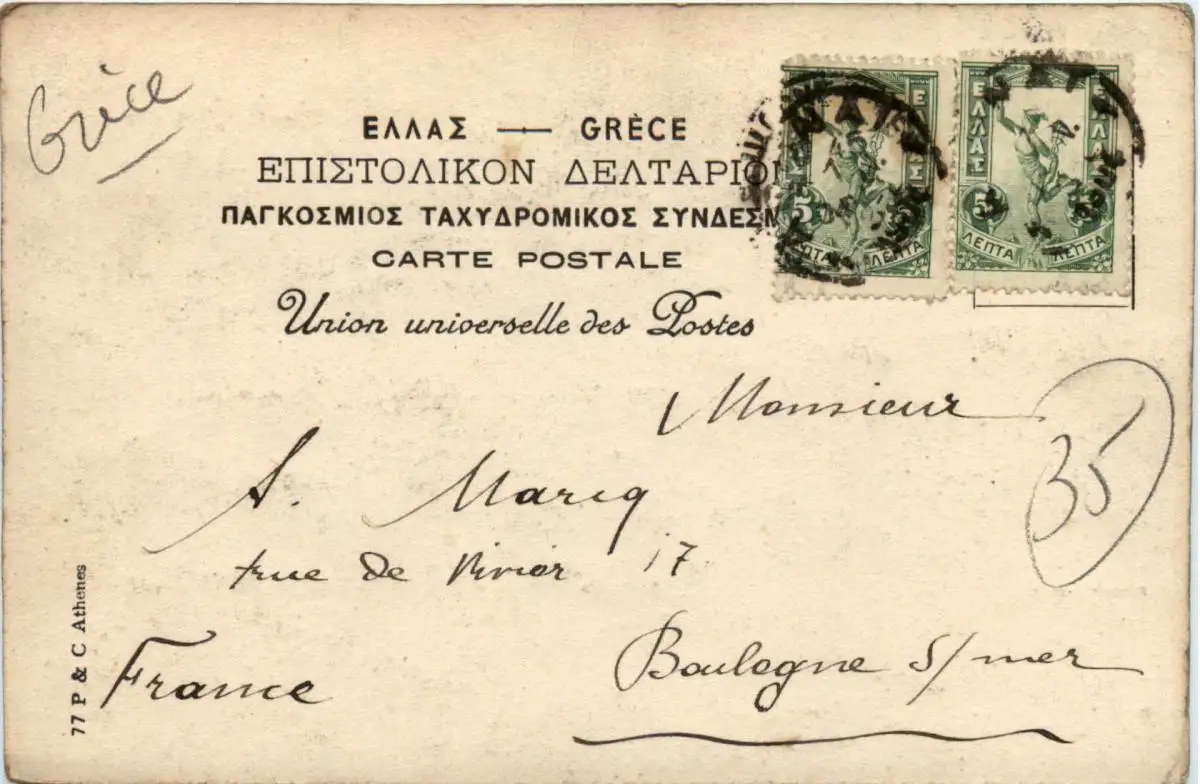 Grèce
ΕΛΛΑΣ — GRÈCE
ΕΠΙΣΤΟΛΙΚΟΝ ΔΕΛΤΑΡΙΟΝ
ΠΑΓΚΟΣΜΙΟΣ ΤΑΧΥΔΡΟΜΙΚΟΣ ΣΥΝΔΕΣΜ
CARTE POSTALE
Union universelle des Postes
5 ΛΕΠΤΑ
ΕΛΛΑΣ 5 ΛΕΠΤΑ ΛΕΠΤΑ
Monsieur
35
A. Marcq
rue de 17
Boulogne s/mer
France
77 P & C Athenes